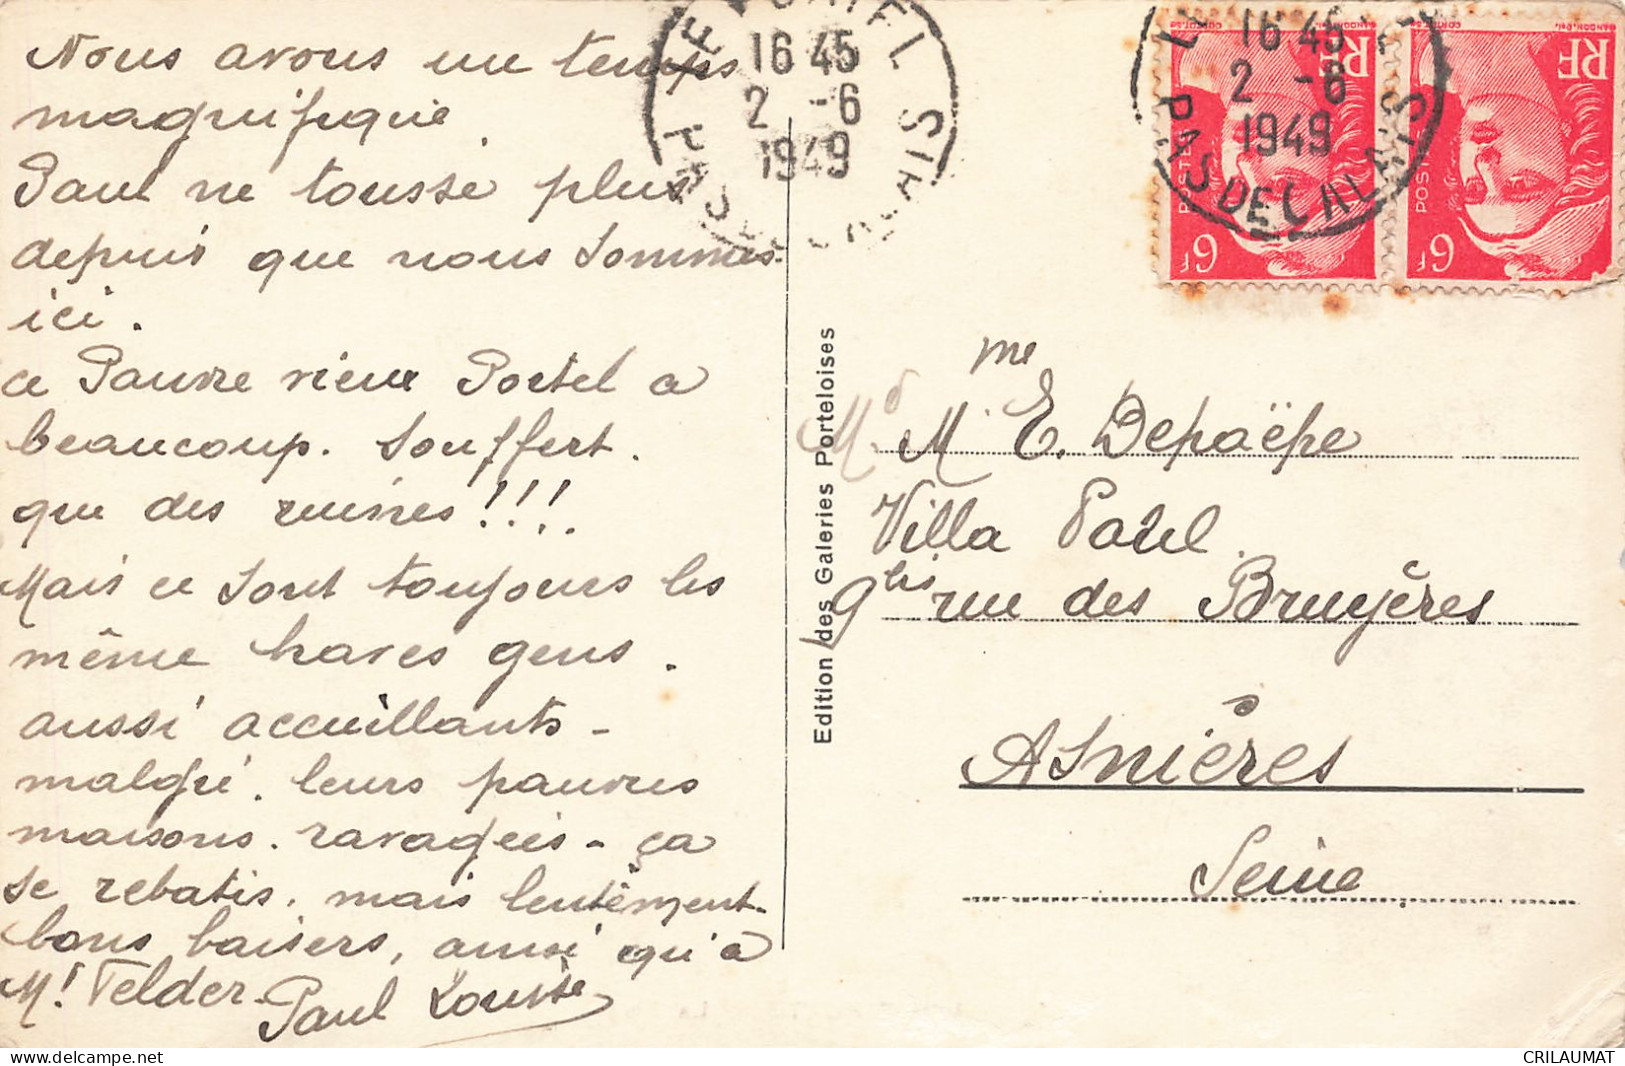 Nous avons un temps
magnifique.
Paul ne tousse plus
depuis que nous sommes
ici.
ce Pauvre vieux Portel a
beaucoup. souffert.
que des ruines!!!.
Mais ce sont toujours les
même braves gens.
aussi accuillants -
malgré. leurs pauvres
maisons. ravagées - ça
se rebatis. mais lentèment.
bons baisers, ainsi qu'à
Mr. Felder. Paul Louise
LE PORTEL SUR
16 45
2 -6
1949
Edition des Galeries Porteloises
16 45
2 -6
1949
PAS DE CALAIS
RF
POSTES
6F
RF
POSTES
6F
Me
Md M E. Depaëpe
Villa Patel.
9bis rue des Bruyères
à
Asnières
Seine
delcampe.net
CRILAUMAT